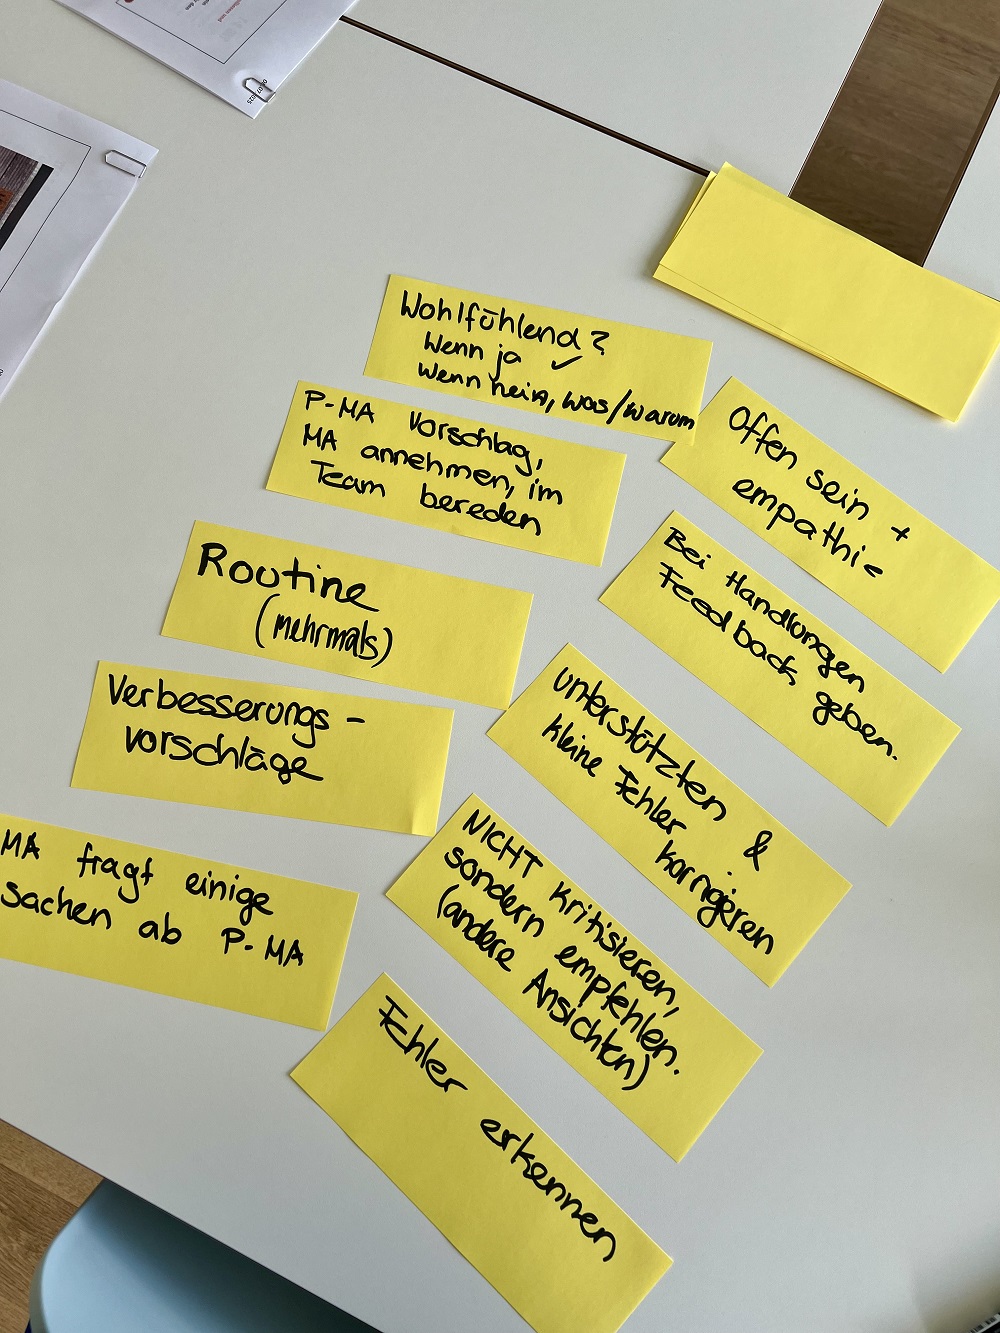 Wohlfühlend?
Wenn ja ✓
Wenn nein, was/warum
P-MA Vorschlag,
MA annehmen, im
Team bereden
Routine
(mehrmals)
Verbesserungs-
vorschläge
MA fragt einige
sachen ab P-MA
Offen sein +
empathie
Bei Handlungen
Feedback geben.
unterstützten &
kleine Fehler korrigieren
NICHT kritisieren,
sondern empfehlen.
(andere Ansichten)
Fehler erkennen